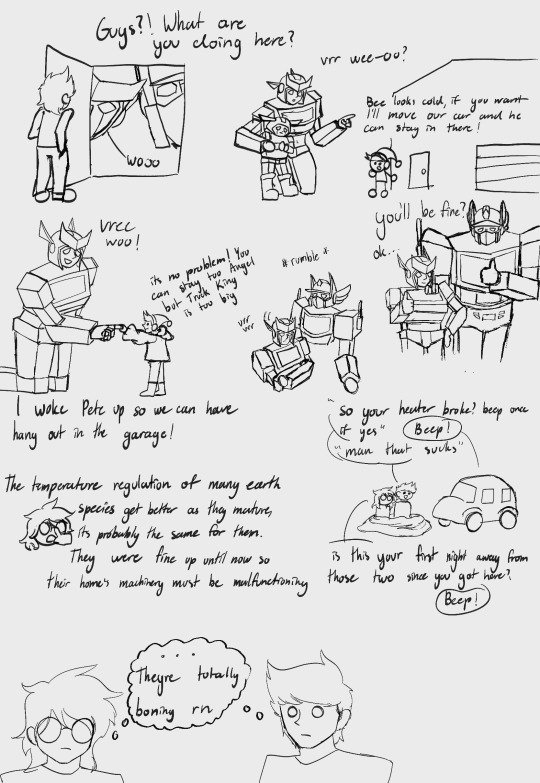 Guys?! What are
you doing here?
WOOO
vrr wee-oo?
Bee looks cold, if you want
I'll move our car and he
can stay in there!
vree
woo!
its no problem! You
can stay too Angel
but Truck King
is too big
*rumble*
vrr
vrr
you'll be fine?
ok...
I woke Pete up so we can have
hang out in the garage!
"so your heater broke? beep once
if yes"
Beep!
"man that sucks"
The temperature regulation of many earth
species get better as they mature,
its probably the same for them.
They were fine up until now so
their home's machinery must be malfunctioning
is this your first night away from
those two since you got here?
Beep!
...
Theyre totally
boning rn